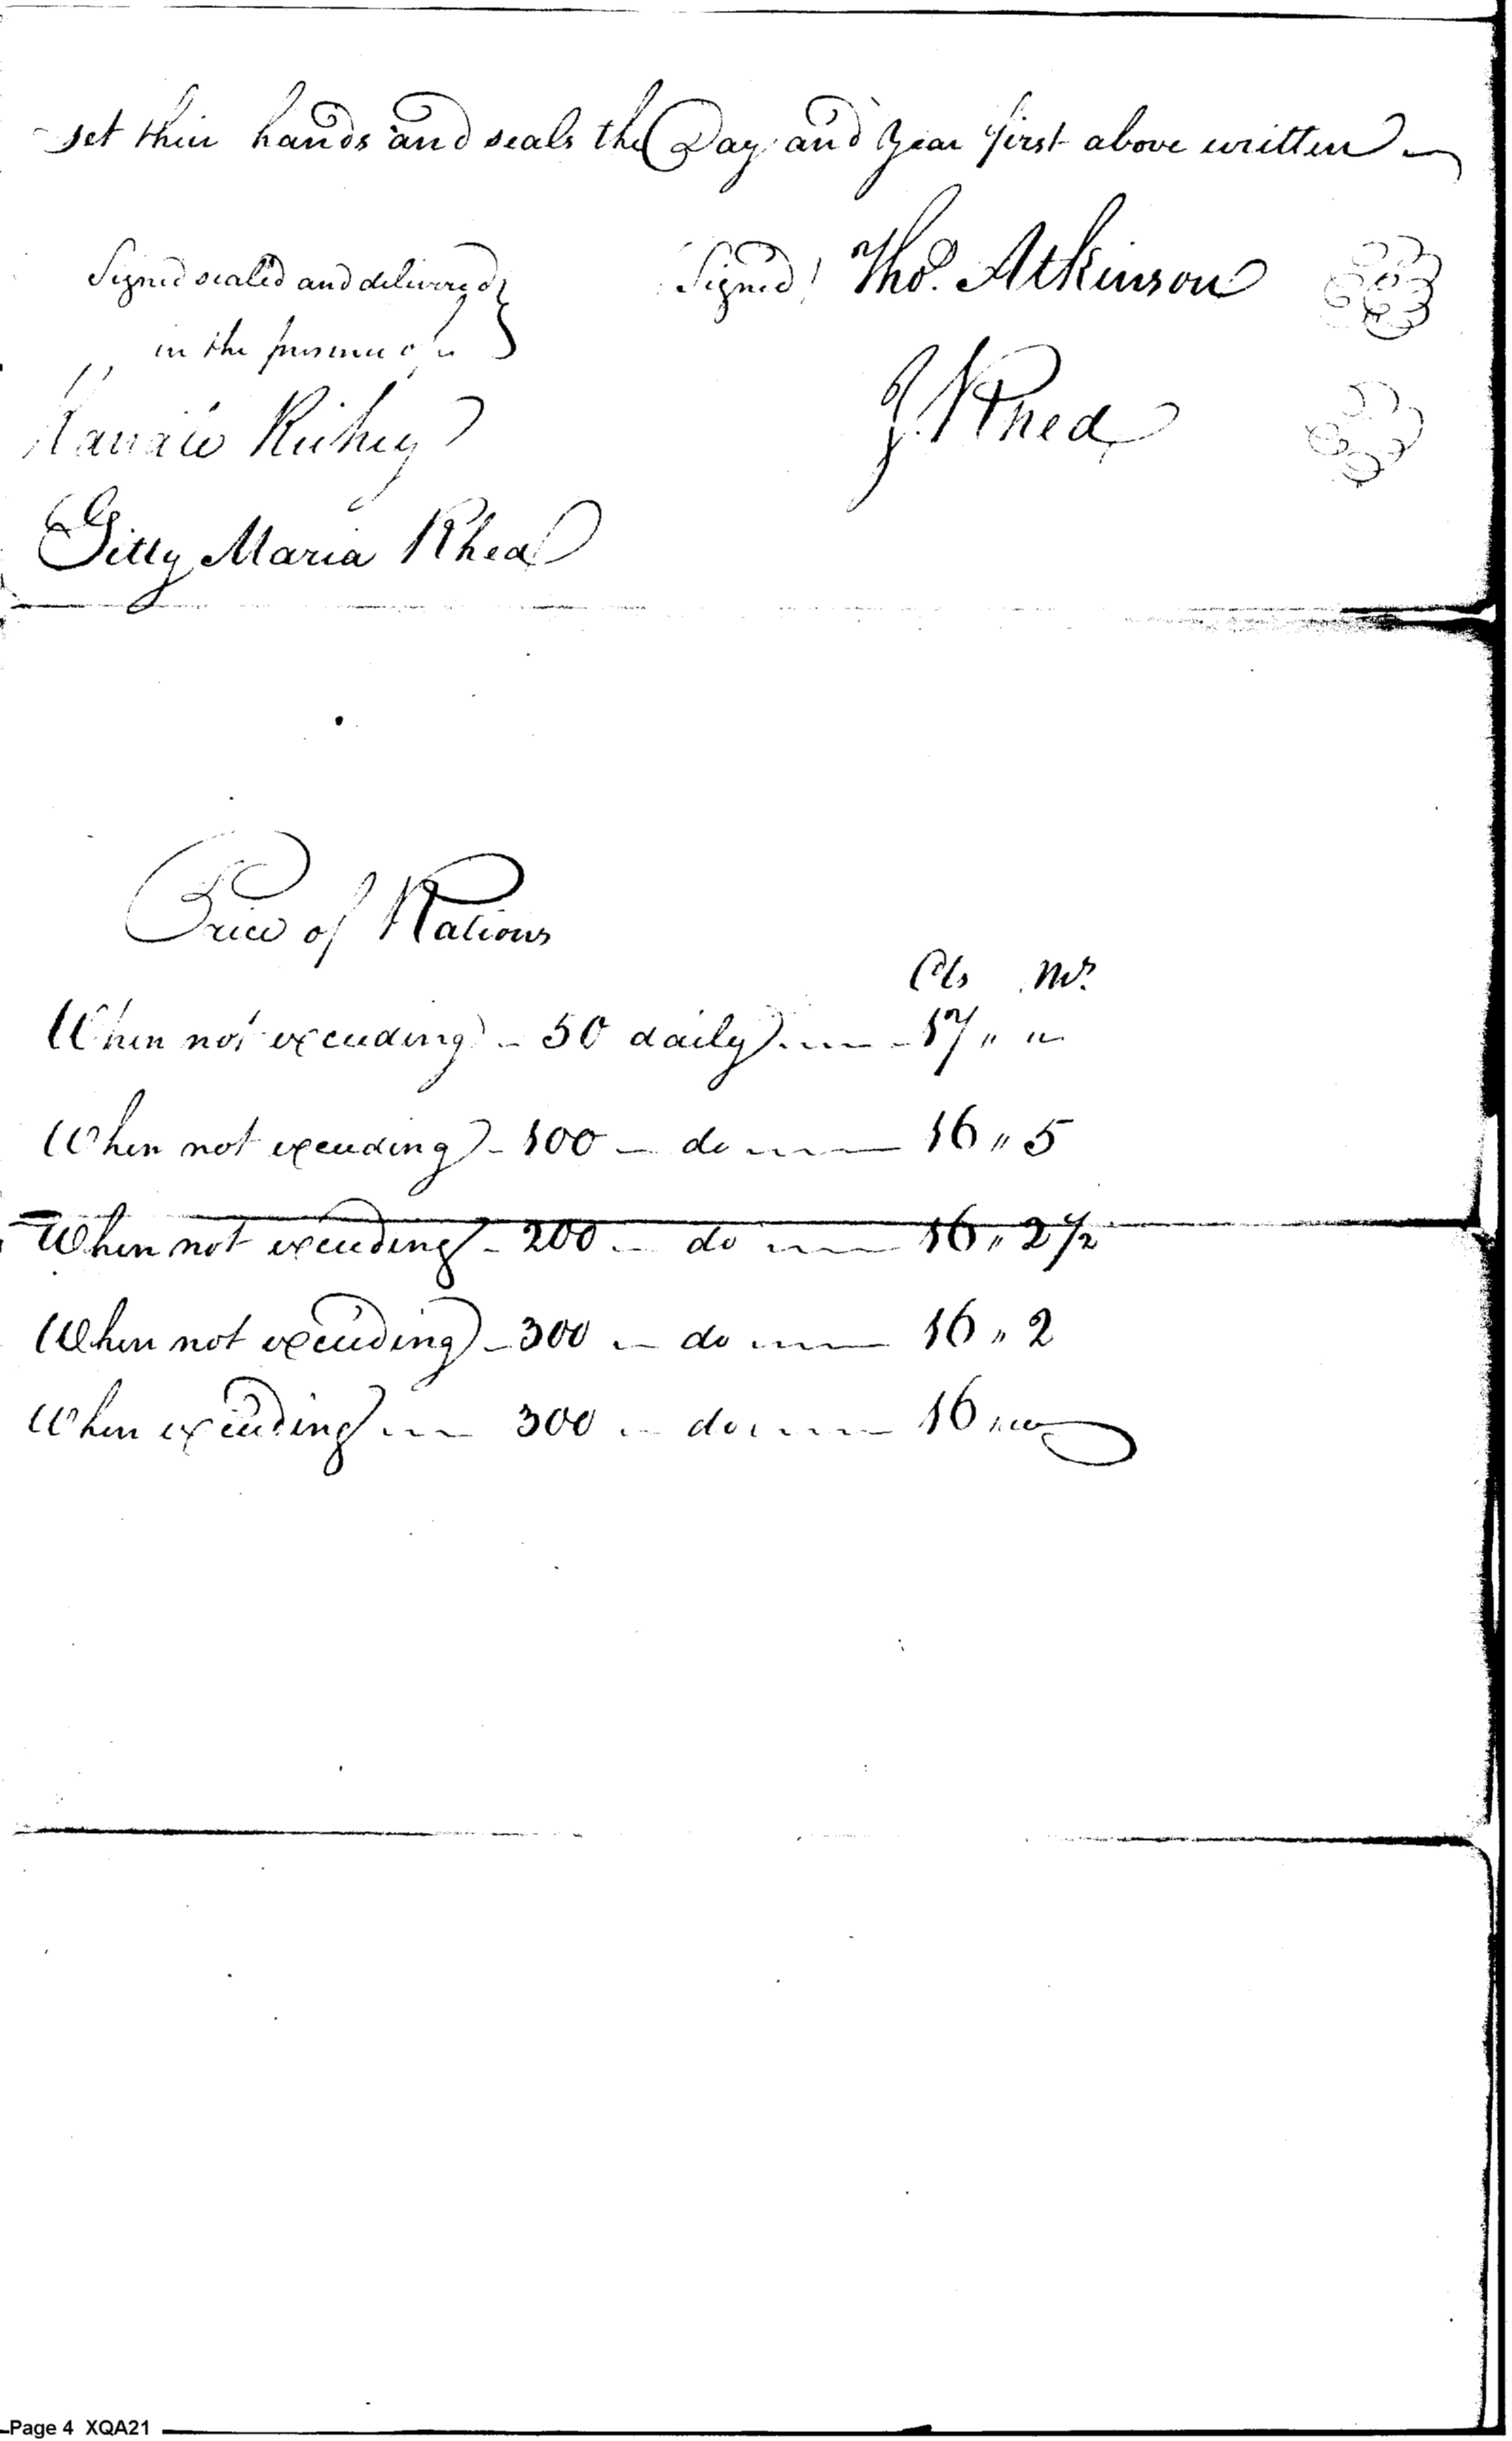 set their hands and seals the Day and Year first above written
Signed sealed and delivered
in the presence of
Signed Tho.s Atkinson
J. Rhea
Richey
Gitty Maria Rhea
Price of Rations
Cts Ms
When not exceeding - 50 daily - 17 " "
When not exceeding - 100 - do - 16 " 5
When not exceeding - 200 - do - 16 " 2 1/2
When not exceeding - 300 - do - 16 " 2
When exceeding - 300 - do - 16 "
Page 4 XQA21